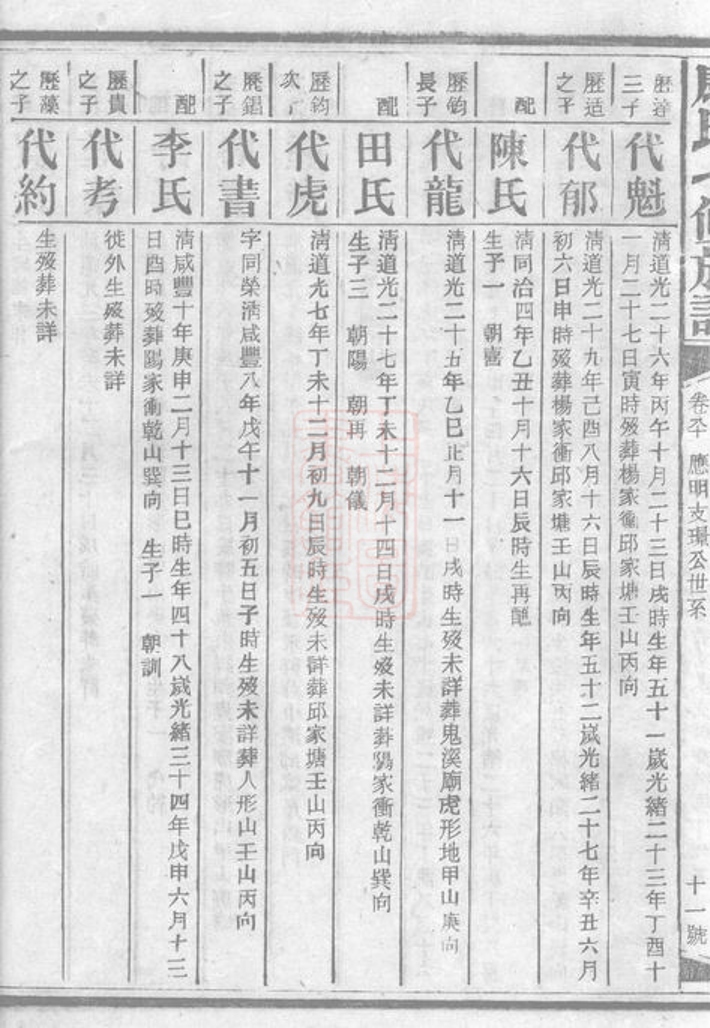 氏
修族譜
卷 應明支璟公世系
十一號
歷達三子
代魁
清道光二十六年丙午十月二十三日戌時生年五十一歲光緒二十三年丁酉十
一月二十七日寅時歿葬楊家衝邱家塘壬山丙向
歷适之子
代郁
清道光二十九年己酉八月十六日辰時生年五十二歲光緒二十七年辛丑六月
初六日申時歿葬楊家衝邱家塘壬山丙向
配
陳氏
清同治四年乙丑十月十六日辰時生再醮
生子一 朝喜
歷鈞長子
代龍
清道光二十五年乙巳正月十一日戌時生歿未詳葬鬼溪廟虎形地甲山庚向
配
田氏
清道光二十七年丁未十二月十四日戌時生歿未詳葬陽家衝乾山巽向
生子三 朝陽 朝再 朝儀
歷鈞次子
代虎
清道光七年丁未十二月初九日辰時生歿未詳葬邱家塘壬山丙向
歷錩之子
代書
字同榮清咸豐八年戊午十一月初五日子時生歿未詳葬人形山壬山丙向
配
李氏
清咸豐十年庚申二月十三日巳時生年四十八歲光緒三十四年戊申六月十三
日酉時歿葬陽家衝乾山巽向 生子一 朝訓
歷貴之子
代考
徙外生歿葬未詳
歷藻之子
代約
生歿葬未詳